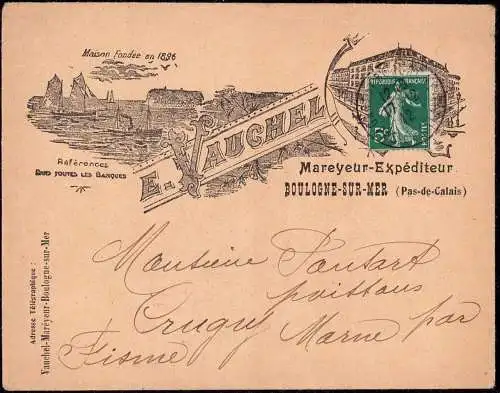 Maison Fondée en 1896
E. VAUCHEL
REPUBLIQUE FRANÇAISE
5c
POSTES
Références
DANS TOUTES LES BANQUES
Mareyeur-Expéditeur
BOULOGNE-SUR-MER (Pas-de-Calais)
Adresse Télégraphique :
Vauchel-Maréyeur-Boulogne-sur-Mer
Monsieur
poissons
Crugny Marne par
Fisme